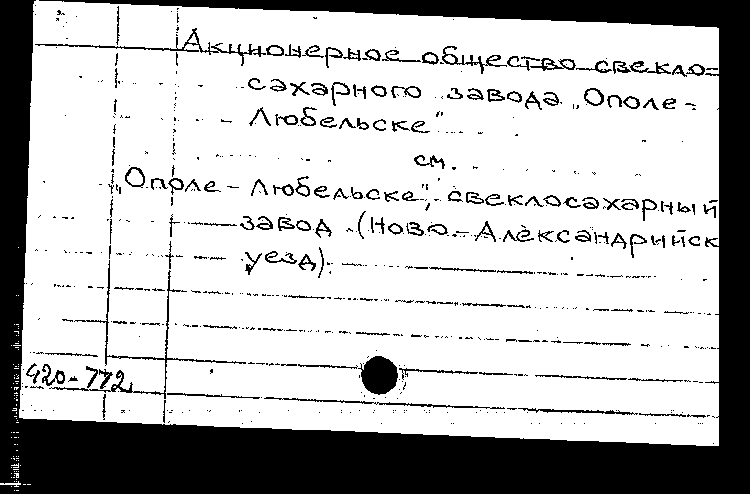 Акционерное общество свекло=
сахарного завода „Ополе-
Любельске"
см.
„Ополе-Любельске", свеклосахарный
завод (Ново-Александрийск
уезд).
420-772